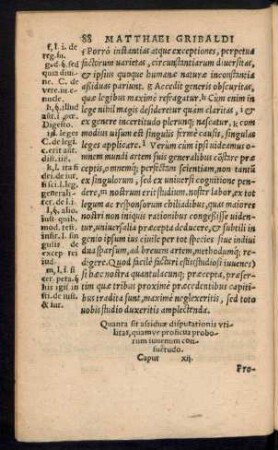 88 MATTHAEI GRIBALDI
f, l. i. de
reg. iu.
g, d. §. sed
quia diui-
ne. C. de
vete. iu. e-
nucle.
h, §. illud
insti. per.
Digesta.
i, §. leges
C. de legi.
l. erit au-
disti.
k, l. tra
di. de iur.
fisci. l. leg.
generaliter.
de
l, §. alio.
insti. quib.
mo. iu.
insir. l. sin
gulis de
excep rei
iud.
m, l. f. si
cer. peta. §.
sti. de iust.
& iur.
f Porrò instantias atque exceptiones, perpetua
factorum varietas, circunstantiarum diuersitas,
& ipsius quoque humanæ naturæ inconstantia
assiduas pariunt. g Accedit generis obscuritas,
quæ legibus maximè refragatur. h Cùm enim in
lege nihil magis desideretur quàm claritas, i &
ex genere incertitudo plerunque nascatur, k com
modius uisum est singulis fermè causis, singulas
leges applicare. l Verum cùm ipsi uideamus o-
mnem mundi artem suis generalibus côstare præ
ceptis, omnemque perfectam scientiam, non tantù
ex singulorum, sed ex uniuersi cognitione pen-
dere, nostrum erit studium, nostri labor, ex tot
legum ac responsorum chiliadibus, quas maiores
nostri non iniquis rationibus congessisse uiden-
tur, uniuersalia præcepta deducere, & subtili in
genio ipsum ius ciuile per tot species siue indiui
dua sparsum, ad breuem artem, methodumque re-
digere. Quod facilè facturi estis studiosi iuuenes
si hæc nostra quantulacunque præcepta, præser-
tim quæ tribus proximè præcedentibus capiti-
bus tradita sunt, maximè neglexeritis, sed toto
uobis studio duxeritis amplectenda.
Quanta sit assiduæ disputationis vti-
litas, quamve proficua probo-
rum iuuenum con-
suetudo.
Caput xij.
Pro-